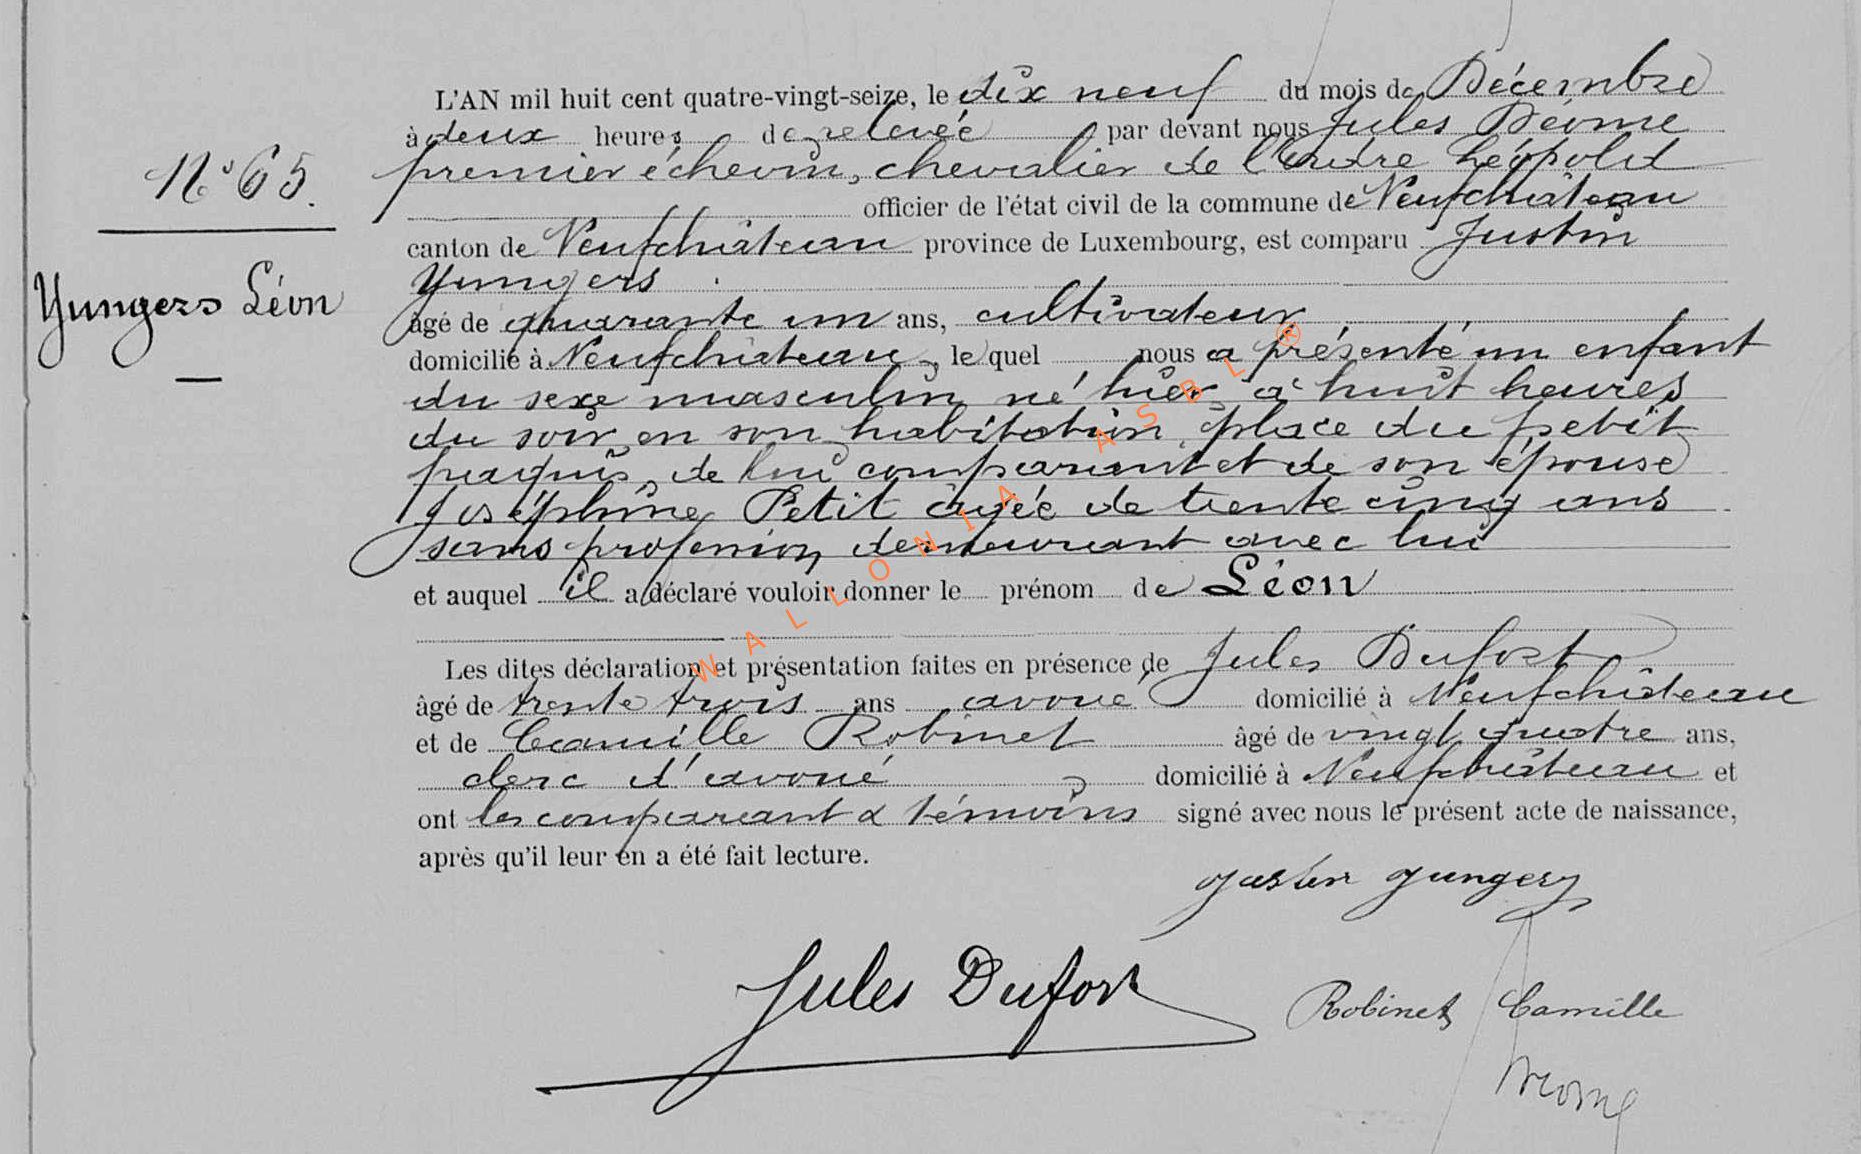 L'AN mil huit cent quatre-vingt-seize, le dix neuf du mois de Décembre
à deux heures de relevée par devant nous Jules
premier échevin, chevalier de l'Ordre Léopold
officier de l'état civil de la commune de Neufchâteau
canton de Neufchâteau province de Luxembourg, est comparu Justin
Yungers
âgé de quarante un ans, cultivateur
domicilié à Neufchâteau, lequel nous a présenté un enfant
du sexe masculin né hier à huit heures
du soir en son habitation, place du petit
paquis, de lui comparant et de son épouse
Joséphine Petit âgée de trente cinq ans
sans profession demeurant avec lui
et auquel il a déclaré vouloir donner le prénom de Léon
Les dites déclaration et présentation faites en présence de Jules Dufort
âgé de trente trois ans avoué domicilié à Neufchâteau
et de Camille Robinet âgé de vingt quatre ans,
clerc d'avoué domicilié à Neufchâteau et
ont les comparant & témoins signé avec nous le présent acte de naissance,
après qu'il leur en a été fait lecture.
N° 65.
Yungers Léon
Justin Yungers
Jules Dufort
Robinet Camille
WALLONIA ASBL ®